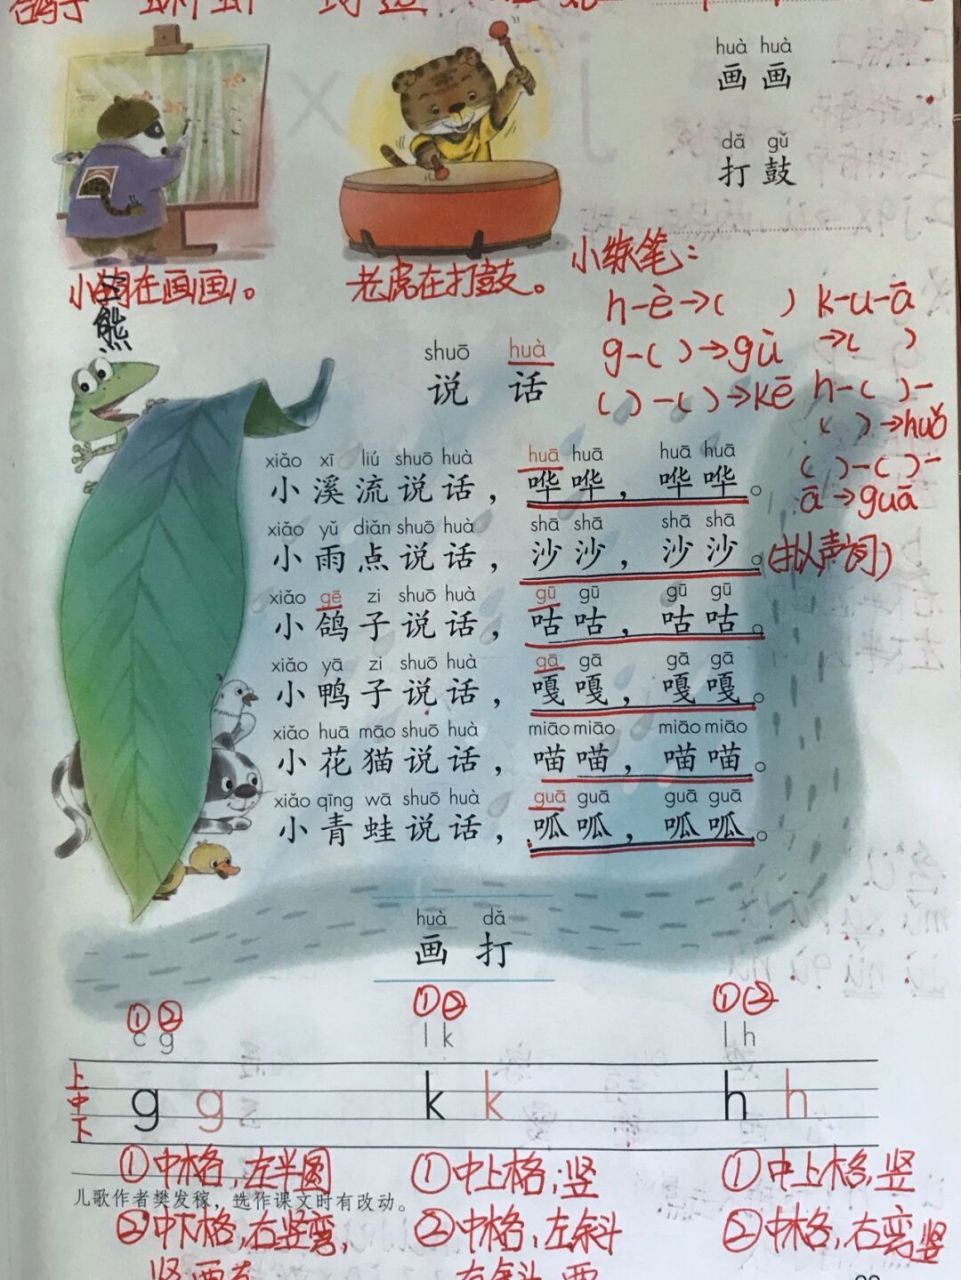 huà huà
画画
dǎ gǔ
打鼓
小狗在画画。
熊
老虎在打鼓。
小练笔：
h-è→( ) k-u-ā
→( )
g-( )→gù
( )-( )→kē h-( )-
( )→huǒ
( )-( )-
ā→guā
shuō huà
说话
xiǎo xī liú shuō huà huā huā huā huā
小溪流说话，哗哗，哗哗。
xiǎo yǔ diǎn shuō huà shā shā shā shā
小雨点说话，沙沙，沙沙。(拟声词)
xiǎo gē zi shuō huà gū gū gū gū
小鸽子说话，咕咕，咕咕。
xiǎo yā zi shuō huà gā gā gā gā
小鸭子说话，嘎嘎，嘎嘎。
xiǎo huā māo shuō huà miāo miāo miāo miāo
小花猫说话，喵喵，喵喵。
xiǎo qīng wā shuō huà guā guā guā guā
小青蛙说话，呱呱，呱呱。
huà dǎ
画打
①② ①② ①②
c g l k l h
上
中
下
g g k k h h
①中格，左半圆 ①中上格；竖 ①中上格，竖
儿歌作者樊发稼，选作课文时有改动。
②中下格，右竖弯， ②中格，左斜 ②中格，右弯竖